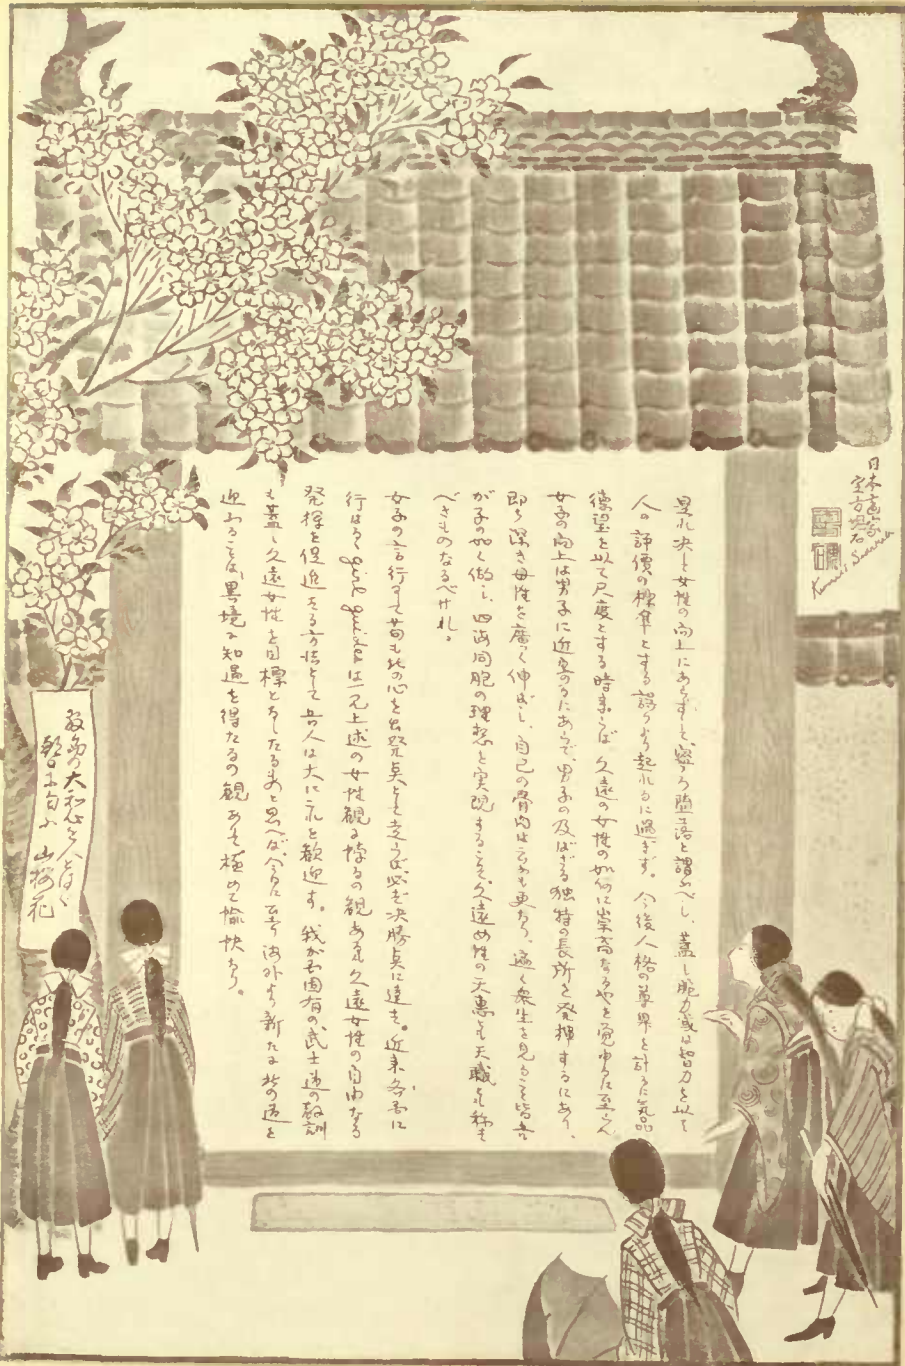 是れ決して女性の向上にあらずして寧ろ堕落と謂ふべし、蓋し腕力或は智力を以て
人の評価の標準とする誤りより起れるに過ぎず。今後人格の算界を計るに気品
徳望を以て尺度とする時来らば久遠の女性の如何に崇高なるやを覚ゆるに至らん
女子の向上は男子に近寄るにあらで、男子の及ばざる独特の長所を発揮するにあり、
即ち深き母性を広く伸ばし、自己の骨肉は云ふも更なり、遍く衆生を見ること皆吾
が子の如く做し、四海同胞の理想を実現することこそ、久遠女性の天恵とも天職とも称す
べきものなるべけれ。
女子の言行すべて苟も此の心を出発点として走らば必ず決勝点に達す。近来各国に
行はるる は一見上述の女性観に悖るの観あるも久遠女性の自由なる
発揮を促進する方法として吾人は大に之れを歓迎す。我が国固有の武士道の教訓
も蓋し久遠女性を目標となしたるものと思へば、今日に至り海外より新たに此の道を
迎ふることは、異境に知遇を得たるの観あって極めて愉快なり。
敷島の大和心を人とはば
朝日に匂ふ 山桜花
日本画家